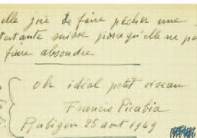 elle joie de faire pêcher une
puisqu'elle ne
faire absoudre
oh idéal petit oiseau
Francis Picabia
Rubigen 25 aout 1949